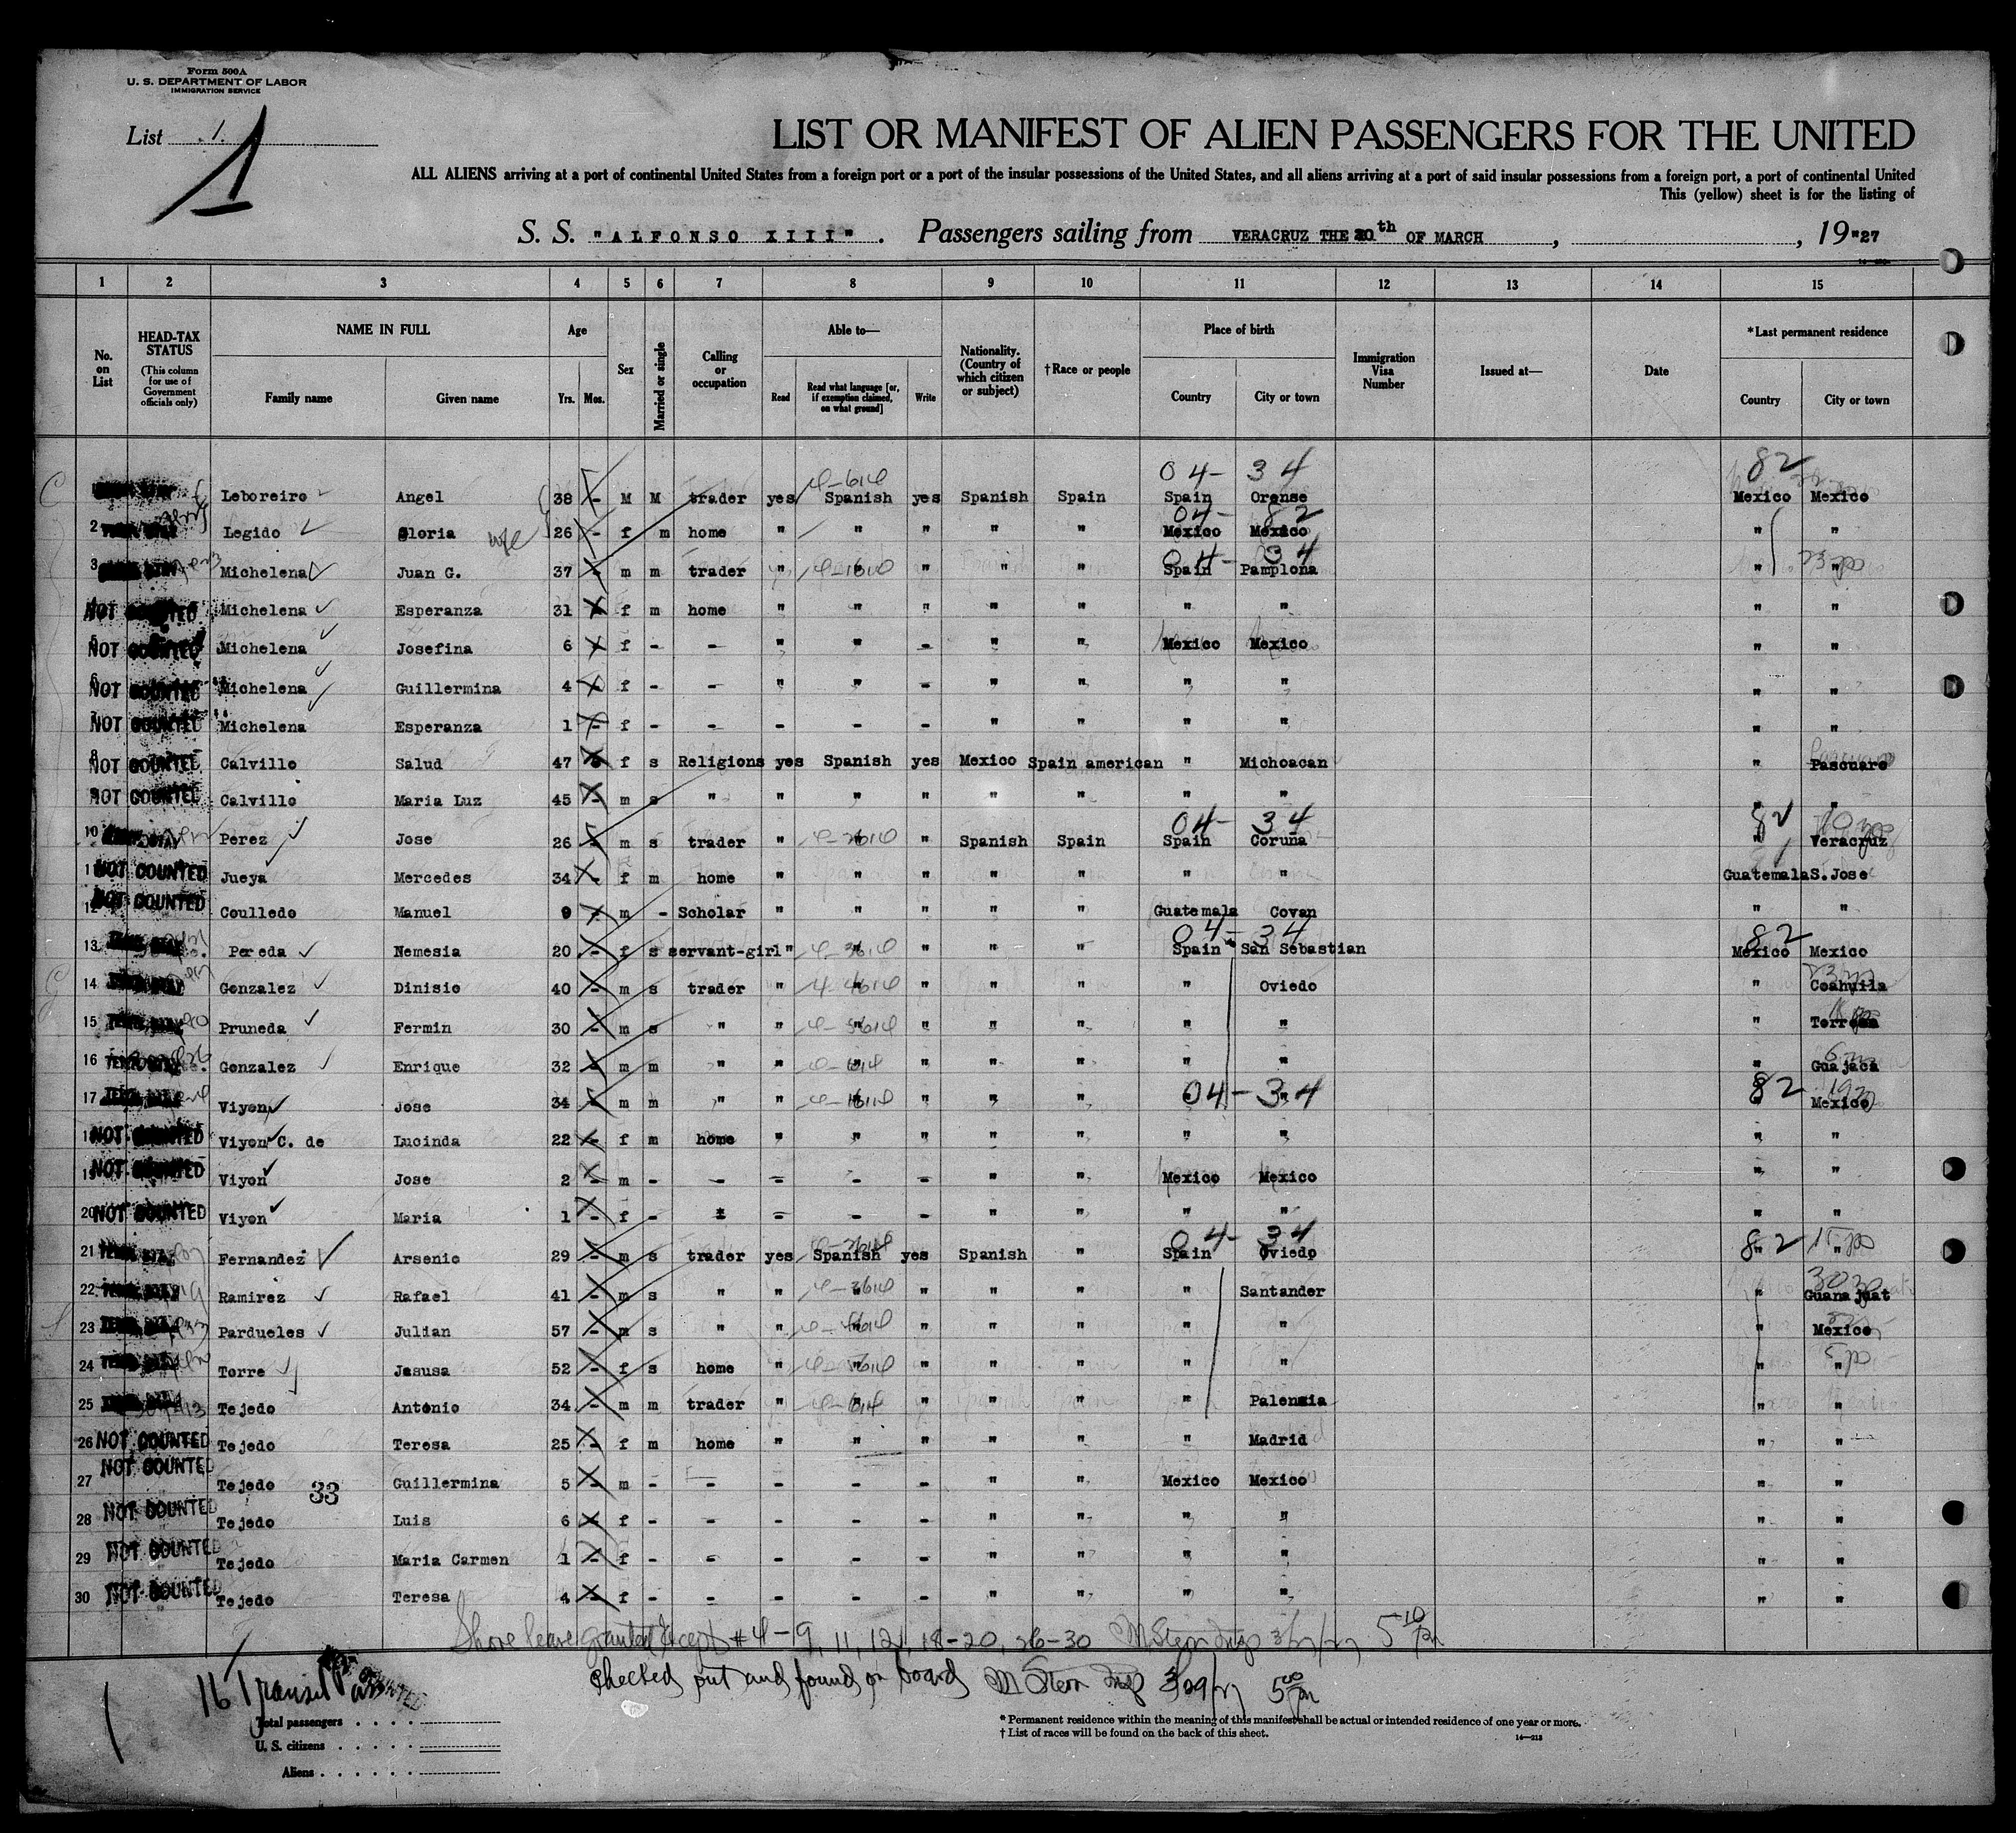 Form 500A
U. S. DEPARTMENT OF LABOR
IMMIGRATION SERVICE
List 1.
1
LIST OR MANIFEST OF ALIEN PASSENGERS FOR THE UNITED
ALL ALIENS arriving at a port of continental United States from a foreign port or a port of the insular possessions of the United States, and all aliens arriving at a port of said insular possessions from a foreign port, a port of continental United
This (yellow) sheet is for the listing of
S. S. "ALFONSO XIII". Passengers sailing from VERACRUZ THE 20th OF MARCH , , 19"27
1 2 3 4 5 6 7 8 9 10 11 12 13 14 15
No. on List
HEAD-TAX STATUS (This column for use of Government officials only)
NAME IN FULL Family name Given name
Age Yrs. Mos.
Sex
Married or single
Calling or occupation
Able to— Read Read what language [or, if exemption claimed, on what ground] Write
Nationality. (Country of which citizen or subject)
†Race or people
Place of birth Country City or town
Immigration Visa Number
Issued at—
Date
*Last permanent residence Country City or town
04- 34 82
Leboreiro Angel 38 - M M trader yes Spanish yes Spanish Spain Spain Orense Mexico Mexico
04- 82
2 Legido Gloria wife 26 - f m home " " " " " Mexico Mexico " "
04- 34
3 Michelena Juan G. 37 - m m trader " " " " " Spain Pamplona " "
NOT COUNTED Michelena Esperanza 31 - f m home " " " " " " " " "
5 NOT COUNTED Michelena Josefina 6 - f - - " " - " " Mexico Mexico " "
6 NOT COUNTED Michelena Guillermina 4 - f - - " " - " " " " " "
NOT COUNTED Michelena Esperanza 1 - f - - - - - " " " " " "
8 NOT COUNTED Calvillo Salud 47 - f s Religions yes Spanish yes Mexico Spain american " Michoacan " Pascuaro
9 NOT COUNTED Calvillo Maria Luz 45 - m s " " " " " " " " " "
04- 34 82
10 Perez Jose 26 - m s trader " " " Spanish Spain Spain Coruña " Veracruz
11 NOT COUNTED Jueya Mercedes 34 - f m home " " " " " " " Guatemala S.Jose
12 NOT COUNTED Coulledo Manuel 9 - m - Scholar " " " " " Guatemala Covan " "
04- 34 82
13 Pereda Nemesia 20 - f s servant-girl " " " " " Spain San Sebastian Mexico Mexico
14 Gonzalez Dinisio 40 - m s trader " " " " " " Oviedo " Coahuila
15 Pruneda Fermin 30 - m s " " " " " " " " " Torreon
16 Gonzalez Enrique 32 - m m " " " " " " " " " Guajaca
04- 34 82
17 Viyon Jose 34 - m m " " " " " " " " " Mexico
18 NOT COUNTED Viyon C. de Lucinda 22 - f m home " " " " " " " " "
19 NOT COUNTED Viyon Jose 2 - m - - - - - " " Mexico Mexico " "
20 NOT COUNTED Viyon Maria 1 - f - - - - - " " " " " "
04- 34 82
21 Fernandez Arsenio 29 - m s trader yes Spanish yes Spanish " Spain Oviedo " "
22 Ramirez Rafael 41 - m s " " " " " " " Santander " Guanajuat
23 Pardueles Julian 57 - m s " " " " " " " " " Mexico
24 Torre Jasusa 52 - f s home " " " " " " " " "
25 Tejedo Antonio 34 - m m trader " " " " " " Palenzia " "
26 NOT COUNTED Tejedo Teresa 25 - f m home " " " " " " Madrid " "
27 NOT COUNTED Tejedo 33 Guillermina 5 - m - - - - - " " Mexico Mexico " "
28 NOT COUNTED Tejedo Luis 6 - f - - - - - " " " " " "
29 NOT COUNTED Tejedo Maria Carmen 1 - f - - - - - " " " " " "
30 NOT COUNTED Tejedo Teresa 4 - f - - - - - " " " " " "
Shore leave granted except # 4-9, 11, 12, 18-20, 26-30 M Stern Insp 5 10 pm
16 Transit
checked out and found on board M Stern Insp 3/29/27 5 00 pm
Total passengers . . . .
U. S. citizens . . . . .
Aliens . . . . . .
* Permanent residence within the meaning of this manifest shall be actual or intended residence of one year or more.
† List of races will be found on the back of this sheet.
14—213